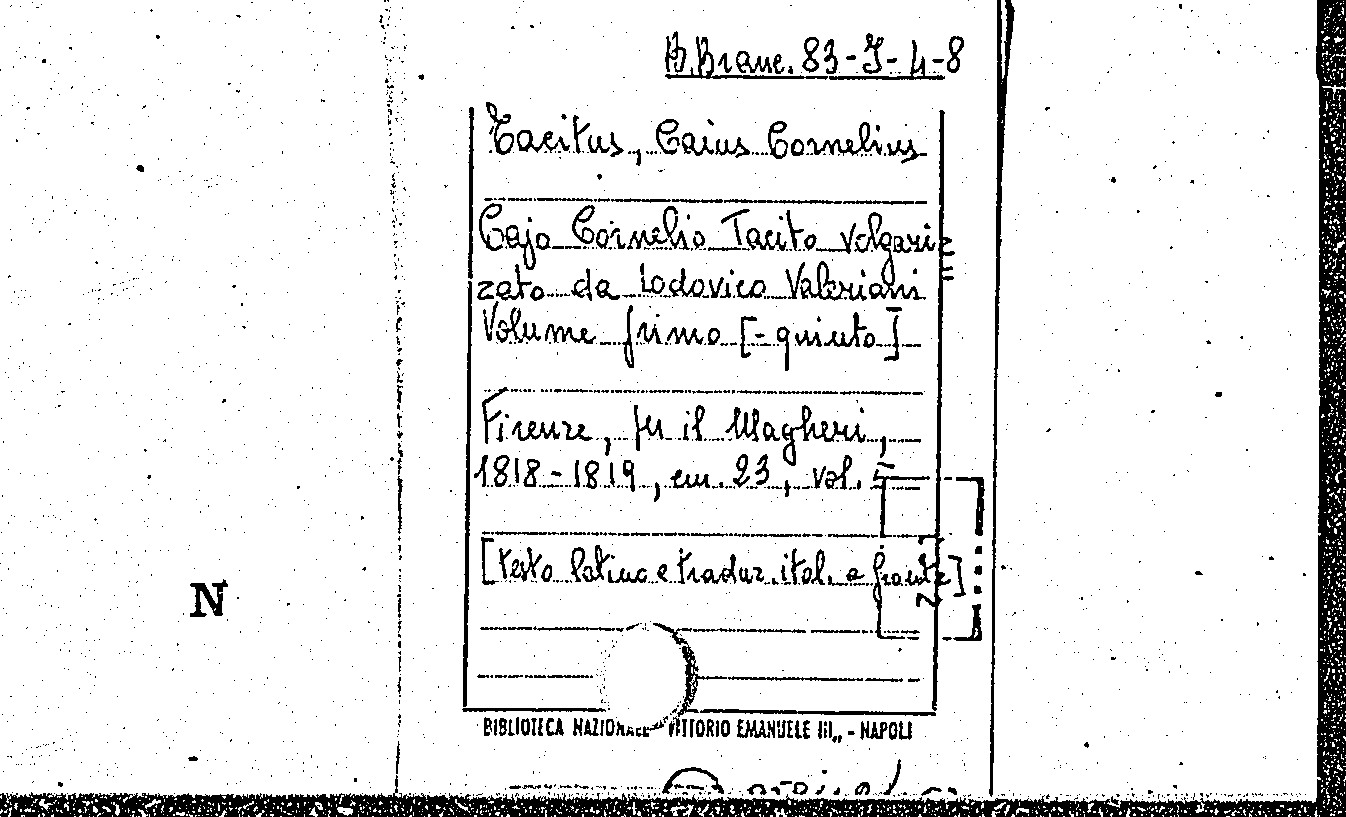 B. Branc. 83-I-4-8
Tacitus, Caius Cornelius
Cajo Cornelio Tacito volgariz=
zato da Lodovico Valeriani
Volume primo [-quinto]
Firenze, per il Magheri,
1818-1819, cm. 23, vol. 5
[testo latino e traduz. ital. a fronte]
N
BIBLIOTECA NAZIONALE VITTORIO EMANUELE III„ - NAPOLI